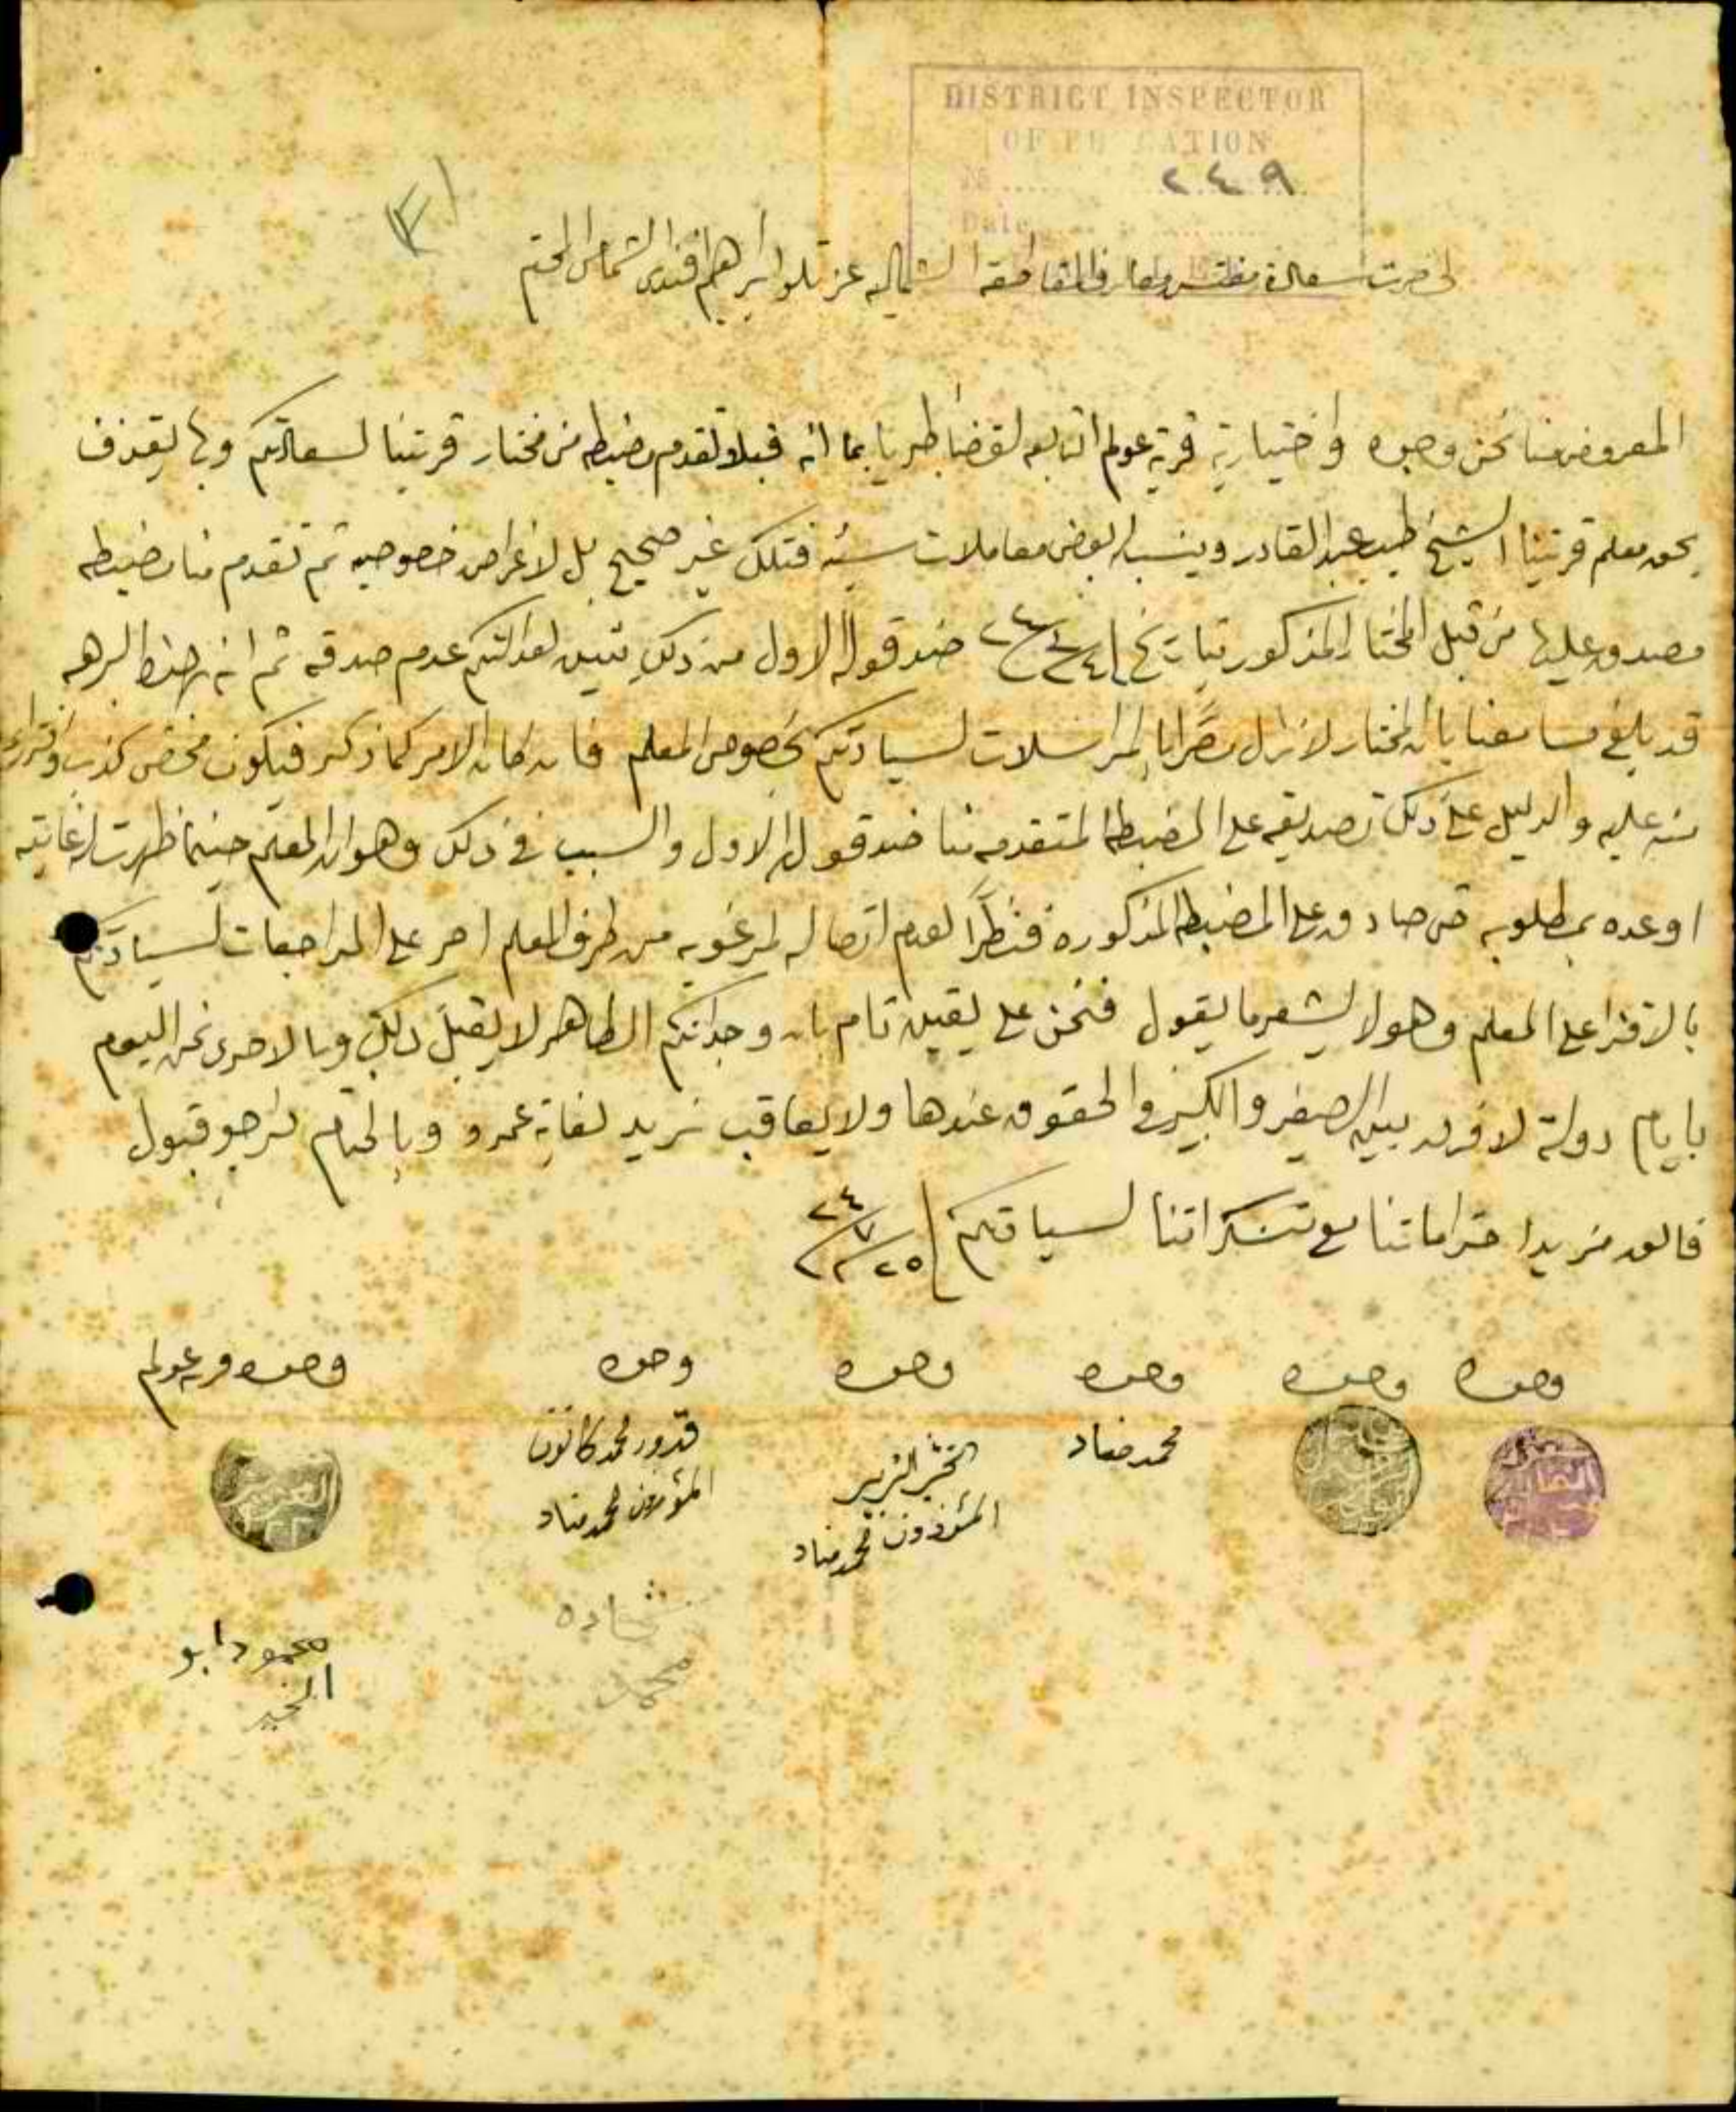 DISTRICT INSPECTOR
OF EDUCATION
No ........ ٢٤٩
Date ........
لحضرت سعادة مفتش معارف المقاطعة الشماليه عزتلو ابراهيم افندي الشماس المحترم
المعروض منا نحن وجوه واختيارية قرية عولم التابعه لقضا طبريا بما انه قبلا تقدم مضبطه من مختار قريتنا لسعادتكم وبها يقذف
بحق معلم قريتنا الشيخ طيب عبد القادر وينسب له بعض معاملات سيئه فتلك غير صحيح بل لاغراض خصوصيه ثم تقدم منا مضبطه
مصدوق عليها من قبل المختار المذكور بتاريخ ضد قوله الاول من ذلك تبين لعدالتكم عدم صدقه ثم انه بهذا البرهه
قد بلغ مسامعنا بان المختار لا زال مصرا بالمراسلات لسيادتكم بخصوص المعلم فان كان الامر كما ذكر فيكون محض كذب وافتراء
منه عليه والدليل على ذلك تصديقه على المضبطه المتقدمه منا ضد قوله الاول والسبب في ذلك وهو ان المعلم حينما ظهرت له غايته
اوعده بمطلوبه حتى صادق على المضبطه المذكوره فنظرا لعدم اتصاله لمرغوبه من طرف المعلم اصر على المراجعات لسيادتكم
بالافترا على المعلم وهو لا يشعر ما يقول فنحن على يقين تام بان وجدانكم الطاهر لا يقبل ذلك وبالاحرى نحن اليوم
بايام دولة لا فرق بين الصغير والكبير في الحقوق عندها ولا يعاقب زيد لغاية عمرو وبالختام نرجو قبول
فائق مزيد احتراماتنا مع تشكراتنا لسيادتكم ٢٥/٧/٢٤
وجوه وجوه وجوه وجوه وجوه وجوه قريه عولم
محمد مناد
الزبير
المئوذون محمد مناد
قدور محمد
المئوذون محمد مناد
شحاده
محمد
محمود ابو
الخير